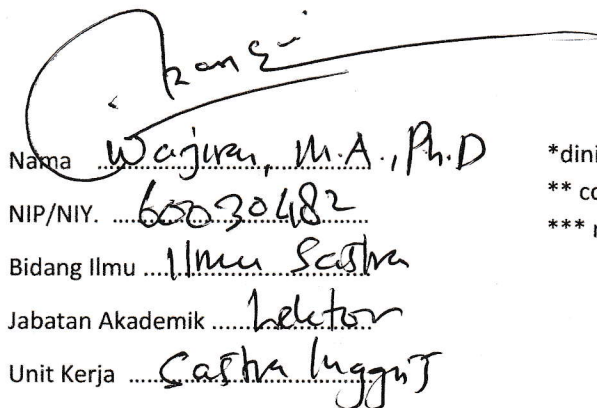 Nama Wajiran, M.A., Ph.D
*dini
NIP/NIY. 60030482
** co
*** r
Bidang Ilmu Ilmu Sastra
Jabatan Akademik Lektor
Unit Kerja Sastra Inggris